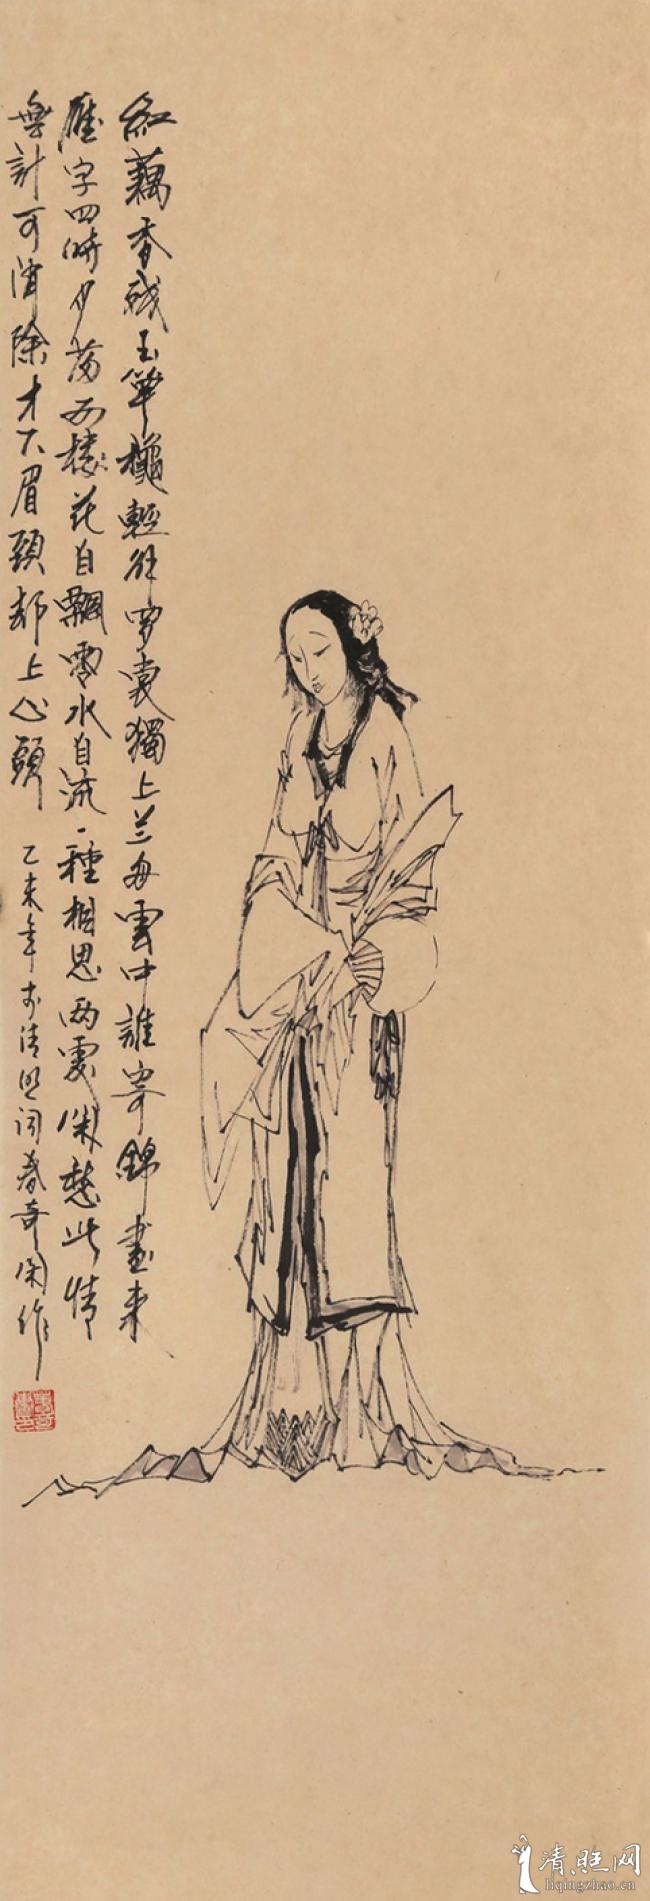 紅藕香残玉簟穐輕解罗裳獨上兰舟雲中誰寄錦書来
雁字回時月满西樓花自飄零水自流一種相思两處闲愁此情
無計可消除才下眉頭却上心頭 乙未年李清照词春奇闲作
清照网
liqingzhao.cn